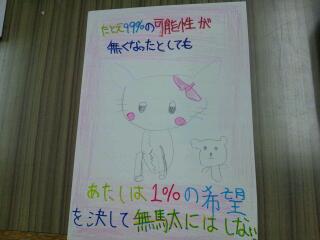 たとえ99%の可能性が
無くなったとしても
あたしは1%の希望
を決して無馬太にはしない